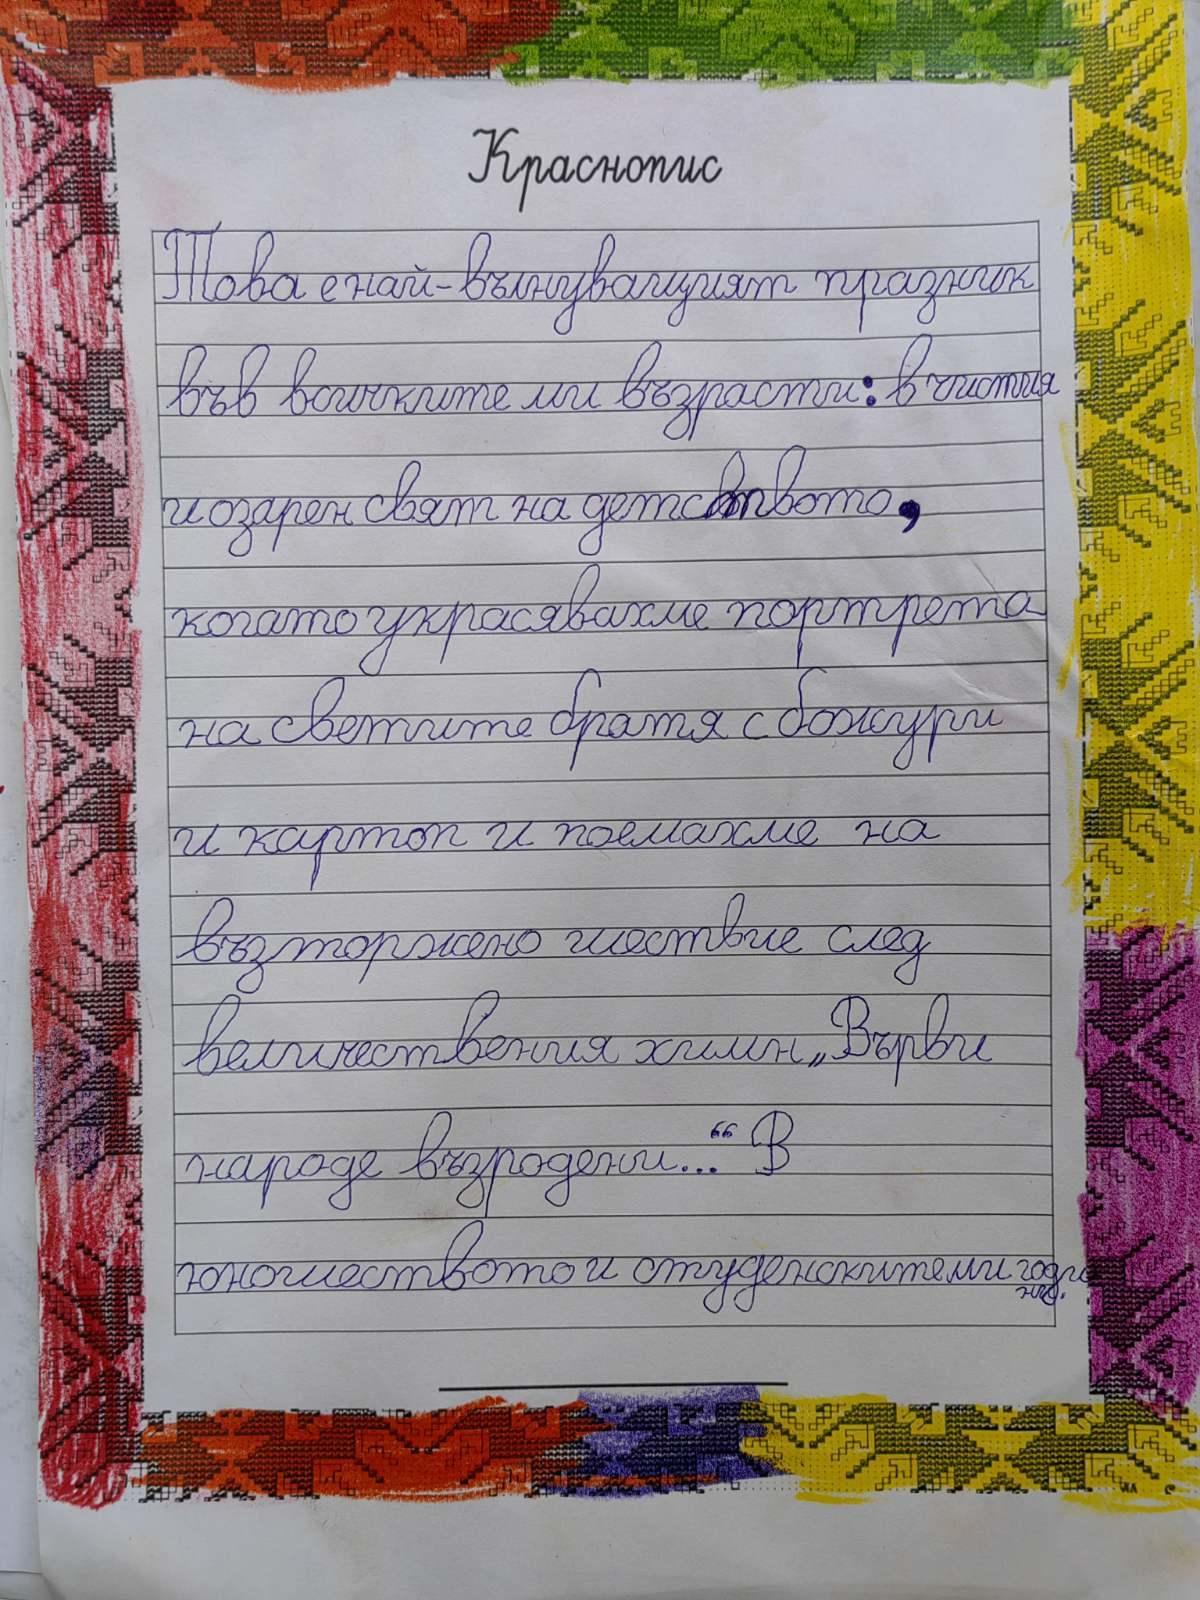 Краснопис
Това е най-вълнуващият празник
във всичките ми възрасти: в чистия
и озарен свят на детството,
когато украсявахме портрета
на светите братя с божури
и картоп и поемахме на
възторжено шествие след
величествения химн „Върви
народе възродени...“ В
юношеството и студенските ми годи
ни.